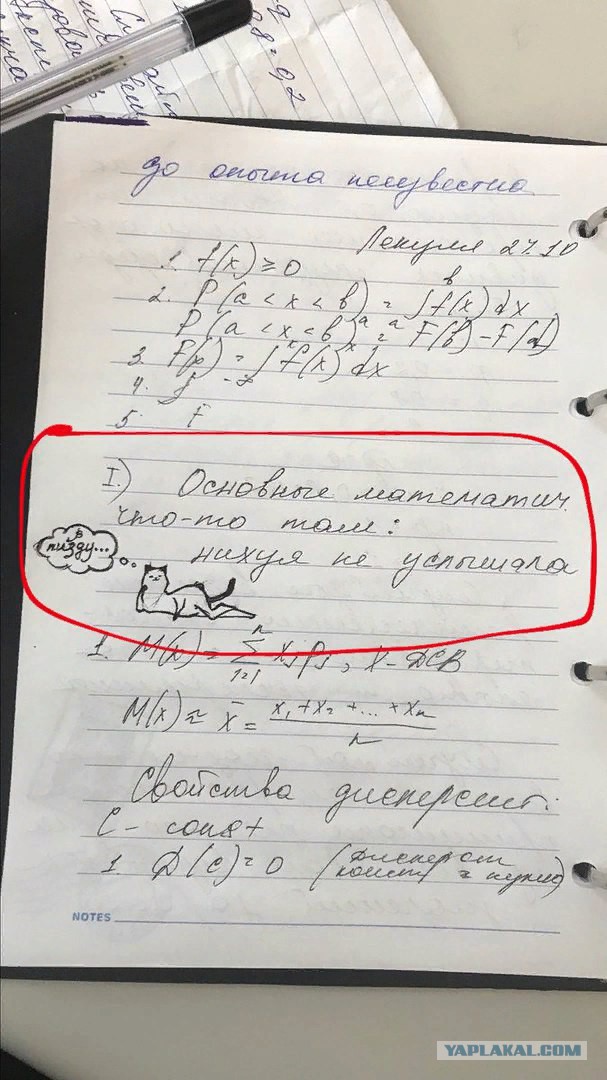 до опыта неизвестна
Лекция 27.10
1. f(x) ≥ 0
2. P(a < x < b) = ∫ₐᵇ f(x) dx
P(a < x < b) = F(b) - F(a)
3. F(x) = ∫ f(x) dx
4.
5. F
I.) Основные математич.
что-то там:
нихуя не услышала
в пизду...
1. M(x) = ∑ xᵢ pᵢ, X - ДСВ
M(x) ≈ x̄ = (x₁ + x₂ + ... + xₙ) / n
Свойства дисперсии:
C - const
1. D(c) = 0 (дисперсия
конст = нулю)
NOTES
YAPLAKAL.COM